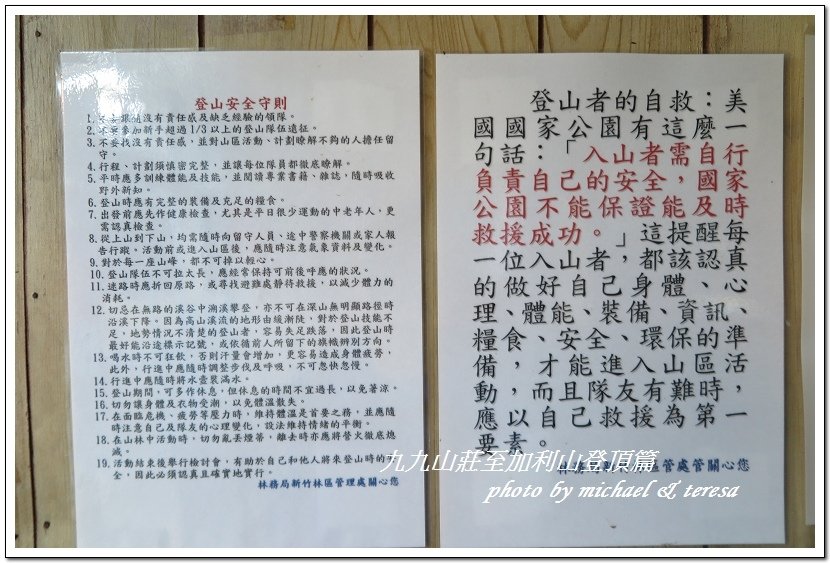 登山安全守則
1.不要跟隨沒有責任感及缺乏經驗的領隊。
2.不要參加新手超過1/3以上的登山隊伍遠征。
3.不委找沒有責任感，並對山區活動、計劃瞭解不夠的人擔任留
守。
4.行程、計劃須慎密完整，並讓每位隊員都徹底瞭解。
5.平時應多訓練體能及技能，並閱讀專業書籍、雜誌，隨時吸收
野外新知。
6.登山時應有完整的裝備及充足的糧食。
7.出發前應先作健康檢查，尤其是平日很少運動的中老年人，更
需認真檢查。
8.從上山到下山，均需隨時向留守人員、途中警察機關或家人報
告行蹤。活動前或進入山區後，應隨時注意氣象資料及變化。
9.對於每一座山峰，都不可掉以輕心。
10.登山隊伍不可拉太長，應經常保持可前後呼應的狀況。
11.迷路時應折回原路，或尋找避難處靜待救援，以減少體力的
消耗。
12.切忌在無路的溪谷中溯溪攀登，亦不可在深山無明顯路徑時
沿溪下降。因為高山溪流的地形由緩漸陡，對於登山技能不
足，地勢情況不清楚的登山者，容易失足跌落，因此登山時
最好能沿途標示記號，或依循前人所留下的旗幟辨別方向。
13.喝水時不可狂飲，否則汗量會增加，更容易造成身體疲勞，
此外，行進中應隨時調整步伐及呼吸，不可忽快忽慢。
14.行進中應隨時將水壺裝滿水。
15.登山期間，可多作休息，但休息的時間不宜過長，以免著涼。
16.切勿讓身體及衣物受潮，以免體溫散失。
17.在面臨危機、疲勞等壓力時，維持體溫是首要之務，並應隨
時注意自己及隊友的心理變化，設法維持情緒的平衡。
18.在山林中活動時，切勿亂丟煙蒂，離去時亦應將營火徹底熄
滅。
19.活動結束後舉行檢討會，有助於自己和他人將來登山時的
全，因此必須認真且確實地實行。
林務局新竹林區管理處關心您
登山者的自救：美
國國家公園有這麼一
句話：「入山者需自行
負責自己的安全，國家
公園不能保證能及時
救援成功。」這提醒每
一位入山者，都該認真
的做好自己身體、心
理、體能、裝備、資訊、
糧食、安全、環保的準
備，才能進入山區活
動，而且隊友有難時，
應以自己救援為第一
要素。
林務局 管處管關心您
九九山莊至加利山登頂篇
photo by michael & teresa